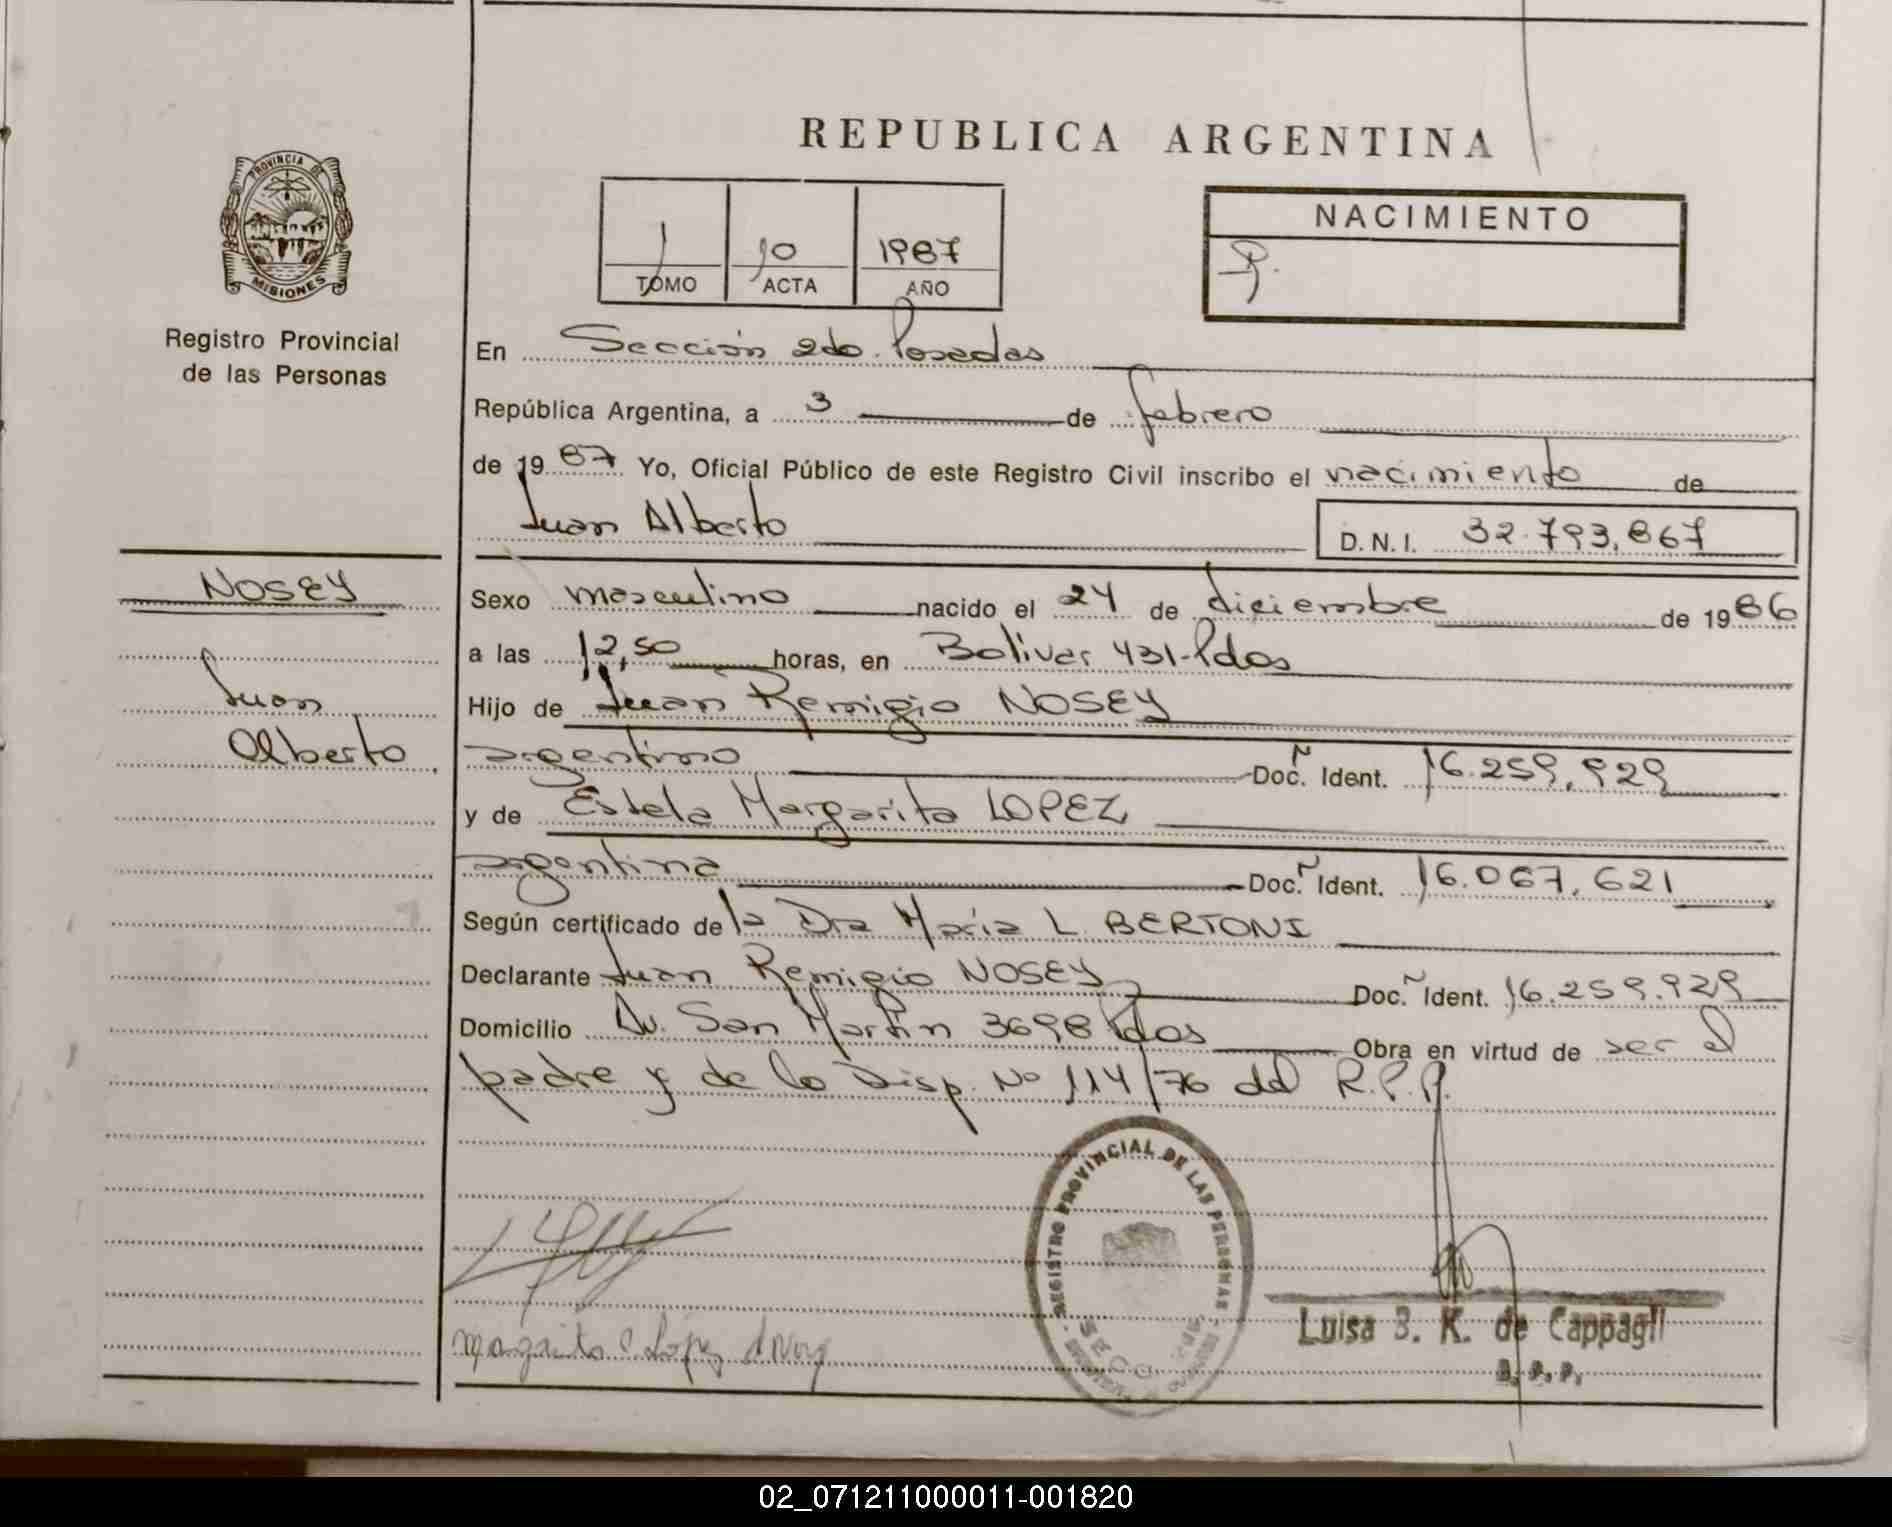 REPUBLICA ARGENTINA
PROVINCIA DE
MISIONES
Registro Provincial
de las Personas
1 10 1987
TOMO ACTA AÑO
NACIMIENTO
En Sección 2do. Posadas
República Argentina, a 3 de febrero
de 1987 Yo, Oficial Público de este Registro Civil inscribo el nacimiento de
Juan Alberto D.N.I. 32.793.867
NOSEY
Juan
Alberto.
Sexo masculino nacido el 24 de diciembre de 1986
a las 12,50 horas, en Bolivar 431-Pdas
Hijo de Juan Remigio NOSEY
argentino Doc. Ident. 16.259.929
y de Estela Margarita LOPEZ
argentina Doc. Ident. 16.067.621
Según certificado de la Dra Maria L. BERTONI
Declarante Juan Remigio NOSEY Doc. Ident. 16.259.929
Domicilio Av. San Martin 3698 Pdas Obra en virtud de ser el
padre y de la Disp. Nº 114/76 del R.P.P.
REGISTRO PROVINCIAL DE LAS PERSONAS
Luisa B. K. de Cappagli
02_071211000011-001820